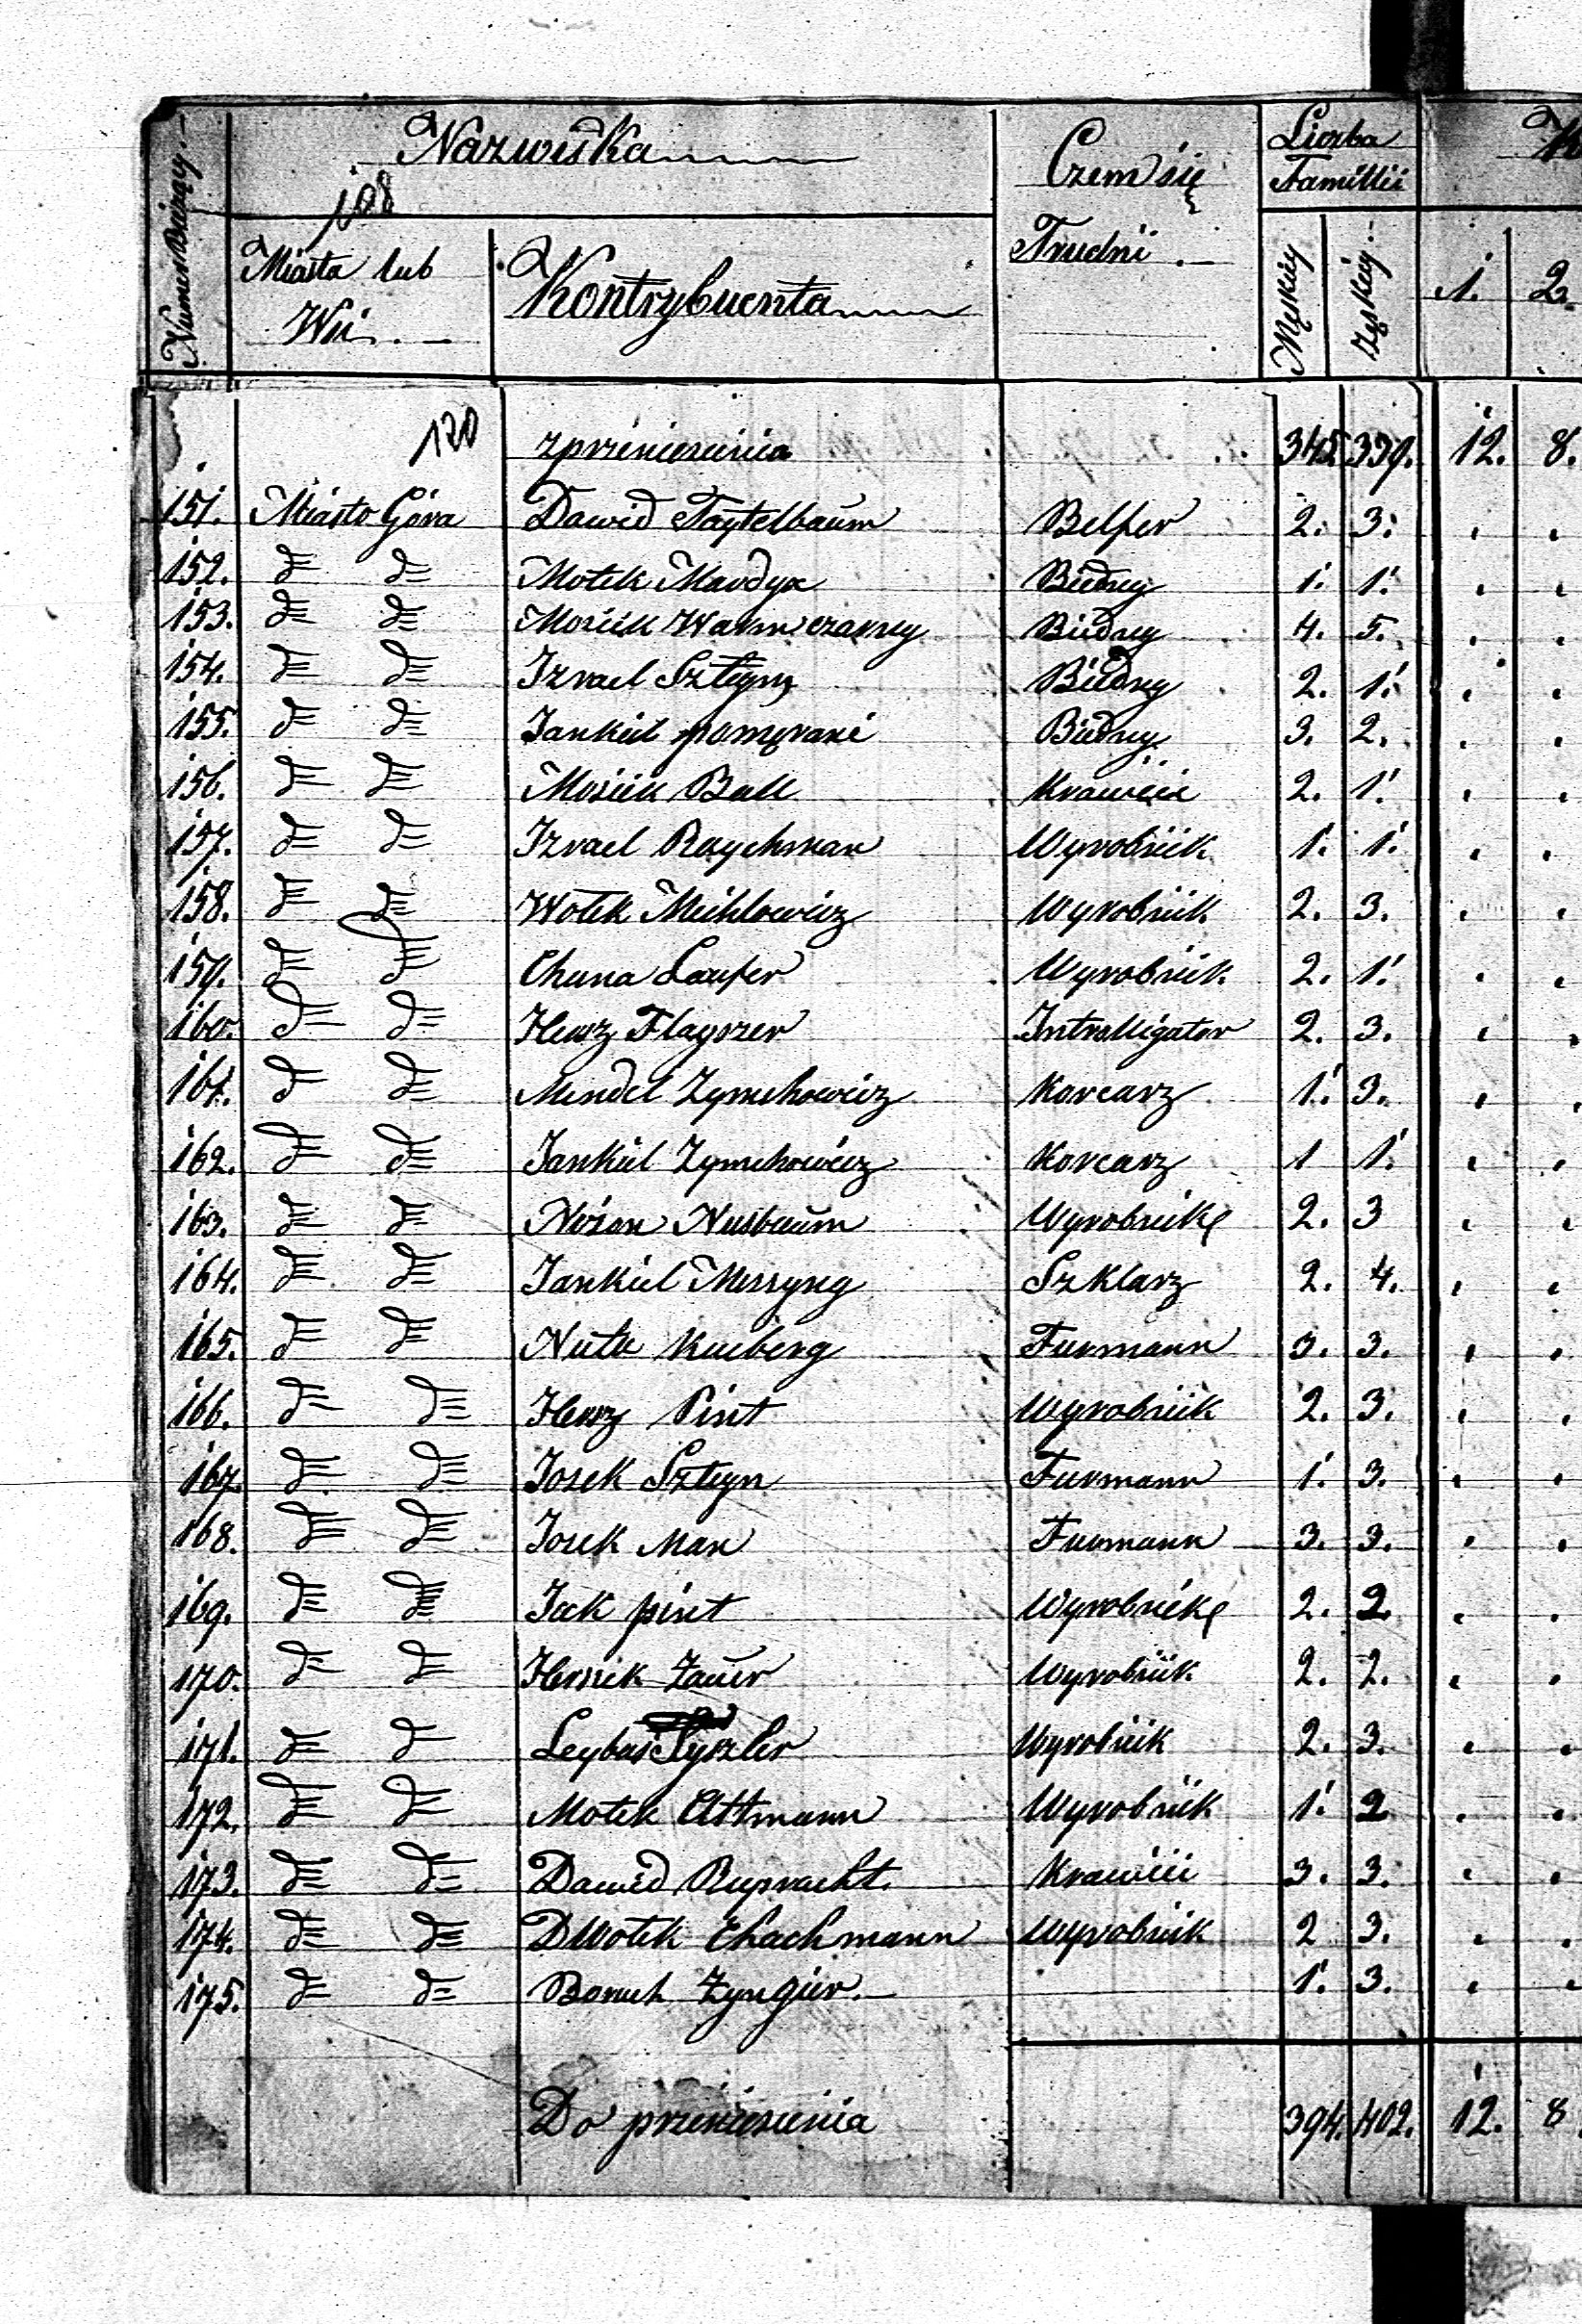 Numer Bieżący
Nazwiska
108
Czem się
Trudni
Liczba
Familii
Miasta lub
Wsi
Kontrybuenta
Męskiey
Żęskiey
1. 2.
120 z przeniesienia 345. 339. 12. 8.
151. Miasto Góra Dawid Taytelbaum Belfer 2. 3.
152. d d Motek Mordyx Biedny 1. 1.
153. d d Mosiek Warm czarny Biedny 4. 5.
154. d d Izrael Szteyn Biedny 2. 1.
155. d d Jankiel Biedny 3. 2.
156. d d Mosiek Ball Krawiec 2. 1.
157. d d Izrael Raychman Wyrobnik 1. 1.
158. d d Wolek Meihlowicz Wyrobnik 2. 3.
159. d d Chuna Laufer Wyrobnik 2. 1.
160. d d Hersz Flayszer Introlligator 2. 3.
161. d d Mendel Zymchowicz Korcarz 1. 3.
162. d d Jankiel Zymchowicz Korcarz 1 1.
163. d d Nusbaum Wyrobnik 2. 3
164. d d Jankiel Messyng Szklarz 2. 4.
165. d d Nuta Furmann 3. 3.
166. d d Hersz Pint Wyrobnik 2. 3.
167. d d Josek Szteyn Furmann 1. 3.
168. d d Josek Man Furmann 3. 3.
169. d d Icek pint Wyrobnik 2. 2
170. d d Hersek Zauer Wyrobnik 2. 2.
171. d d Leybus Syszler Wyrobnik 2. 3.
172. d d Motek Altmann Wyrobnik 1. 2
173. d d Dawid Rupracht. Krawiec 3. 3.
174. d d DWolek Chachmann Wyrobnik 2 3.
175. d d Boruch Zyngier. 1. 3.
Do przeniesienia 394. 402. 12. 8